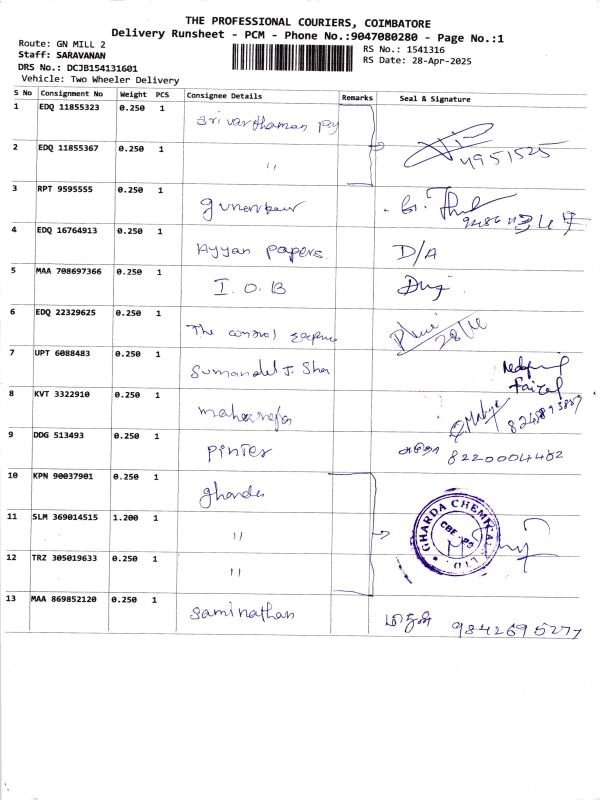 THE PROFESSIONAL COURIERS, COIMBATORE
Delivery Runsheet - PCM - Phone No.:9047080280 - Page No.:1
Route: GN MILL 2
RS No.: 1541316
Staff: SARAVANAN
RS Date: 28-Apr-2025
DRS No.: DCJB154131601
Vehicle: Two Wheeler Delivery
S No Consignment No Weight PCS Consignee Details Remarks Seal & Signature
1 EDQ 11855323 0.250 1 Sri varthaman
2 EDQ 11855367 0.250 1 " 4951525
3 RPT 9595555 0.250 1
4 EDQ 16764913 0.250 1 Ayyan papers D/A
5 MAA 708697366 0.250 1 I.O.B
6 EDQ 22329625 0.250 1 The control 28/4
7 UPT 6088483 0.250 1
8 KVT 3322910 0.250 1
9 DDG 513493 0.250 1 8220004402
10 KPN 90037901 0.250 1
11 SLM 369014515 1.200 1 " GHARDA CHEMICALS LTD. CBE
12 TRZ 305019633 0.250 1 "
13 MAA 869852120 0.250 1 Saminathan 9842695277